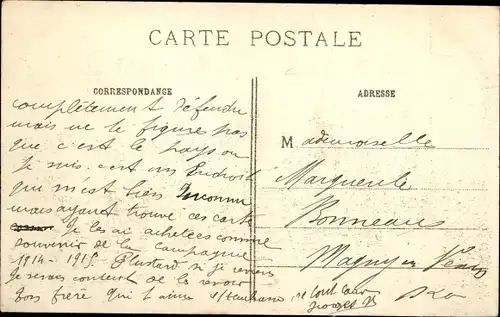 CARTE POSTALE
CORRESPONDANCE
ADRESSE
complètement défendu
mais ne te figure pas
que c'est le pays ou
Je suis c'est un Endroit
qui m'est bien Inconnu
mais ayant trouvé ces carte
Je les ai achetées comme
souvenir de la Campagne
1914 - 1915 Plustard si je reviens
Je serais content de la revoir
ton frère qui t'aime de tout cœur
Mademoiselle
Marguerite
Bonneau
Magny en Vexin